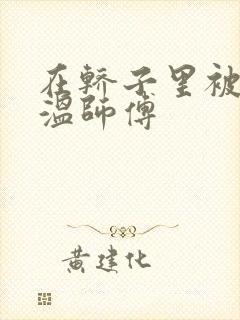 在轿子里被
温师傅
黄建化